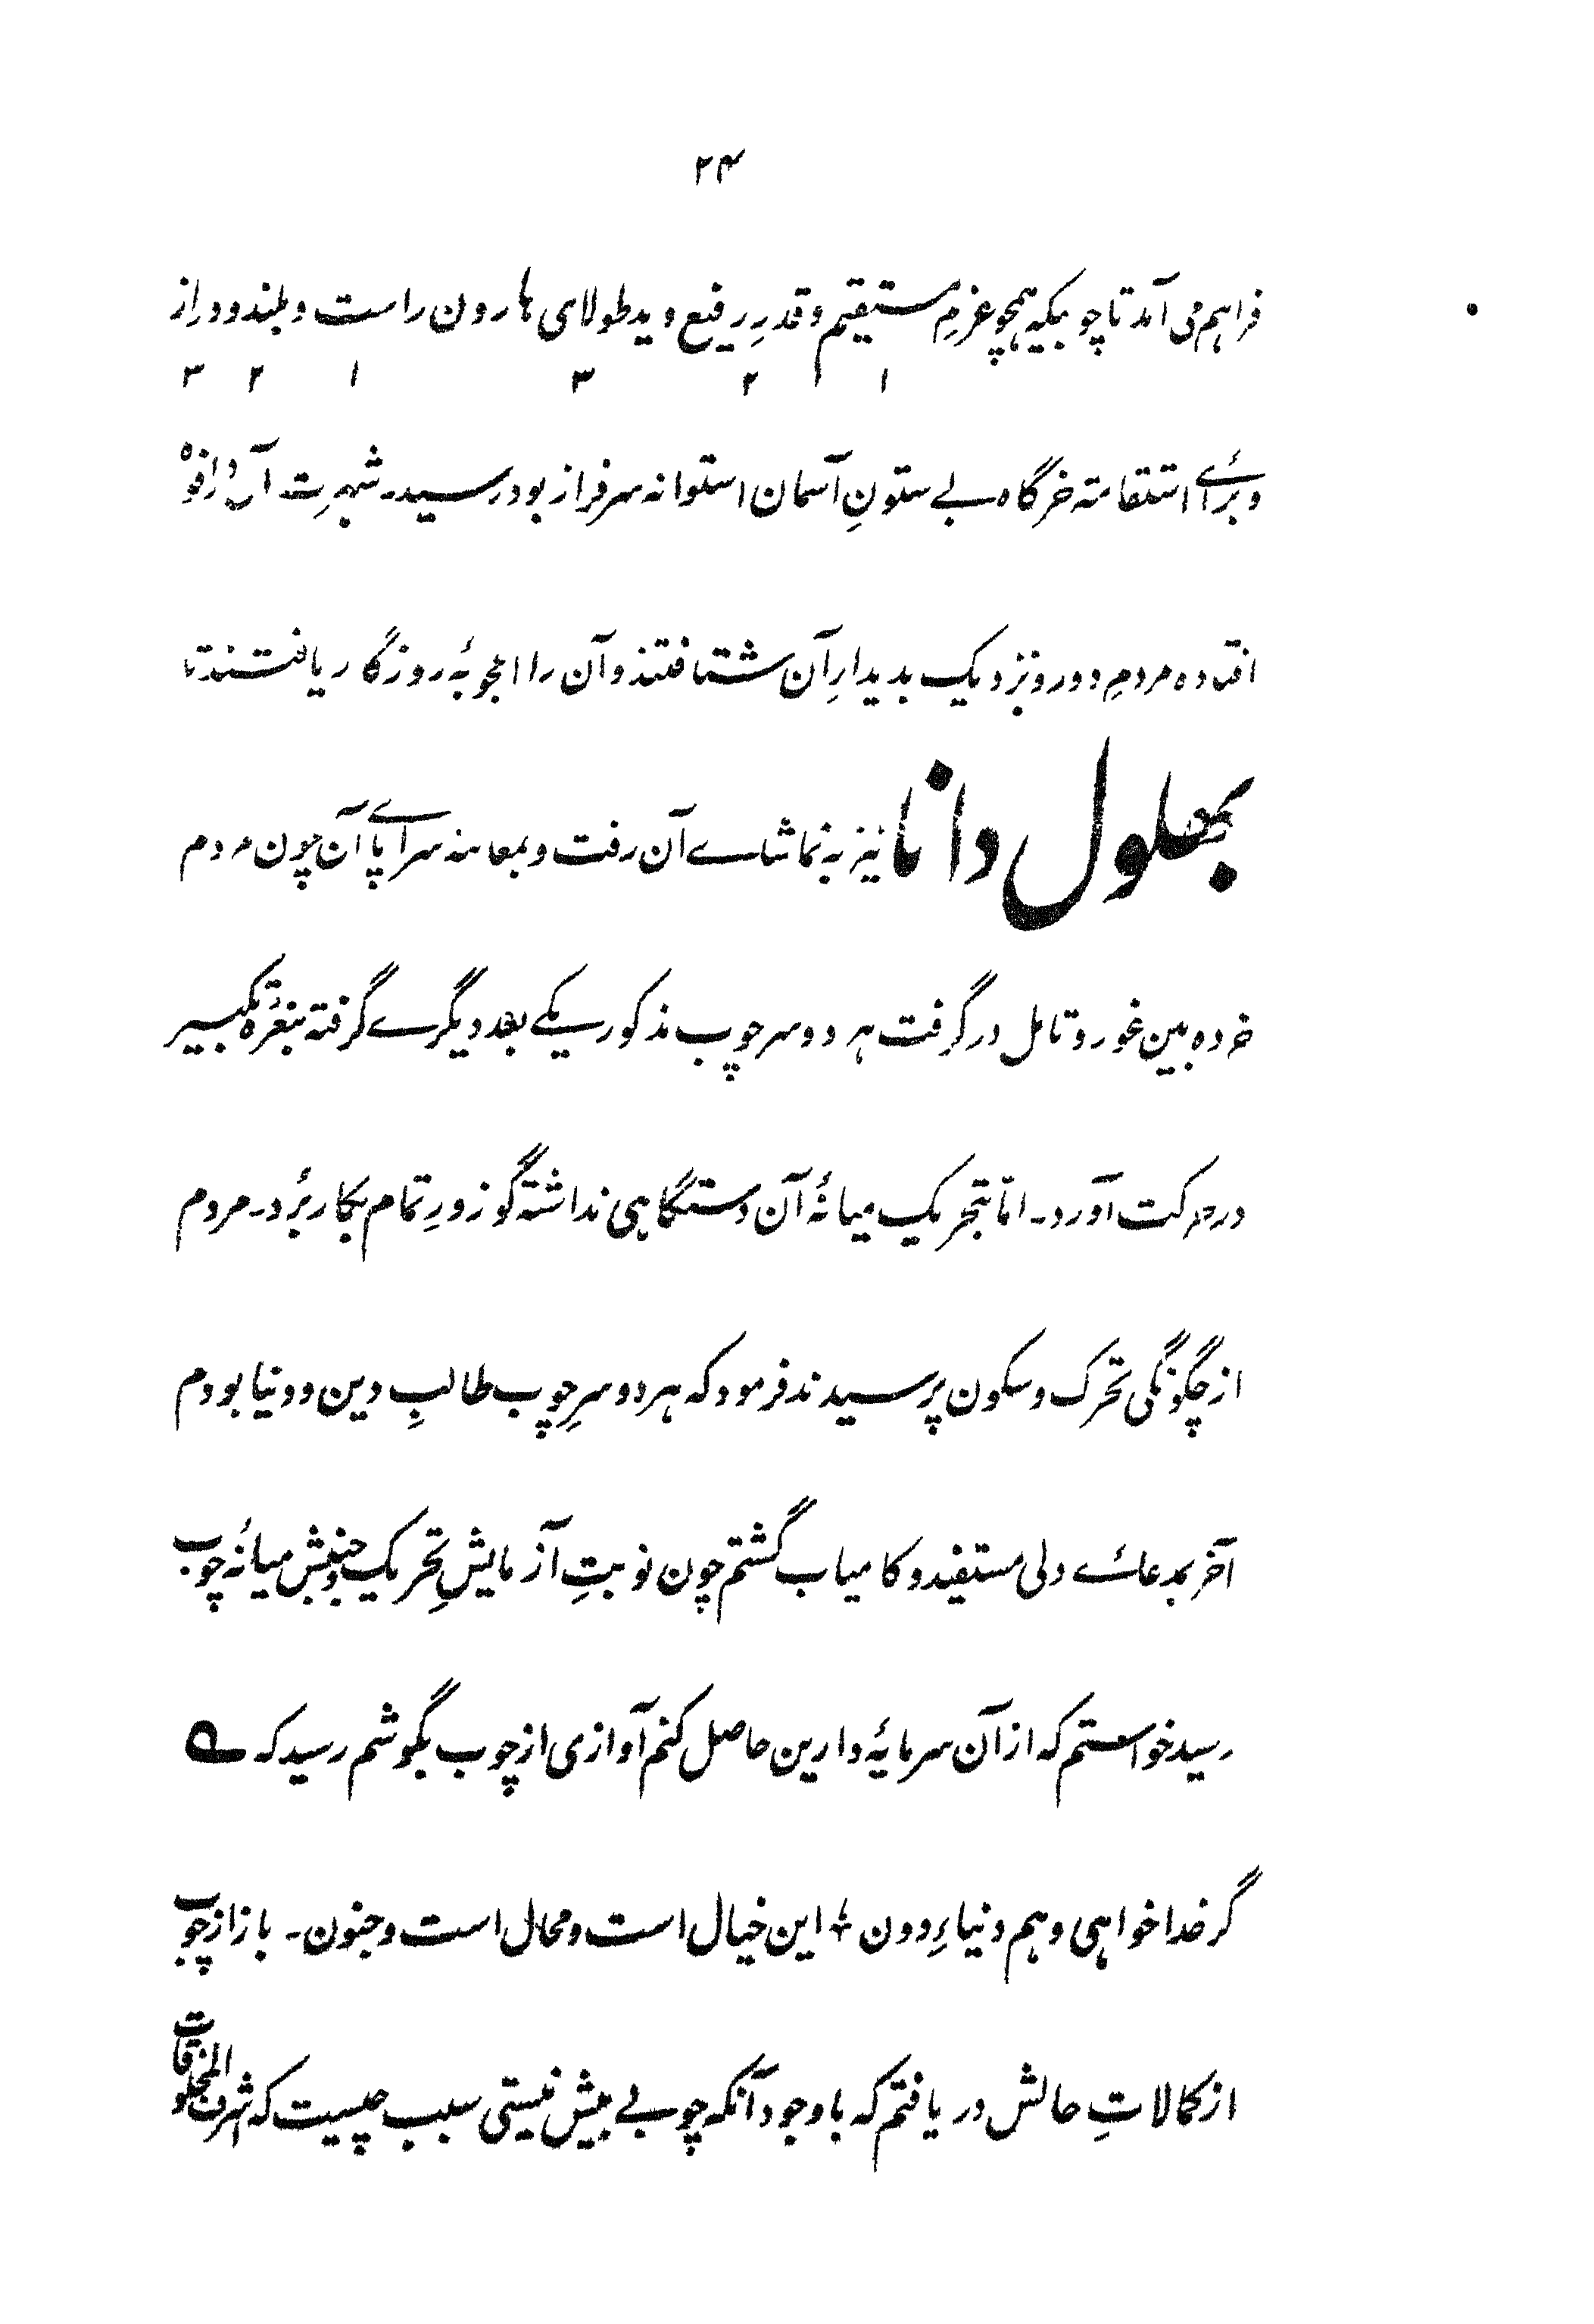 ۲۴
فراہم می آمد تا چوبکیہ ہمچو عزمِ مستقیم و قدرِ رفیع و ید طولای ہارون راست و بلند و دراز
۱ ۲ ۳ ۱ ۲ ۳
و برائے استقامتہ خرگاہ بے ستونِ آسمان استوانہ سرفراز بود رسید۔ شہرتِ آن در افواہ
افتادہ مردمِ دور و نزدیک بدیدارِ آن شتافتند و آن را اعجوبۂ روزگار یافتند تا
بھلول دانا نیز بہ تماشاے آن رفت و بمعاینہ سراپاے آن چون مردم
خردہ بین غور و تامل در گرفت ہر دو سر چوب مذکور یکے بعد دیگرے گرفتہ بنعرۂ تکبیر
در حرکت آورد۔ امّا بتحریک میانۂ آن دستگاہی نداشتہ گو زورِ تمام بکار بُرد۔ مردم
از چگونگی تحرک و سکون پرسیدند فرمود کہ ہر دو سرِ چوب طالبِ دین و دنیا بودم
آخر بمدعائے دلی مستفید و کامیاب گشتم چون نوبتِ آزمایشِ تحریک و جنبش میانۂ چوب
رسید خواستم کہ از آن سرمایۂ دارین حاصل کنم آوازی از چوب بگوشم رسید کہ ؎
گر خدا خواہی و ہم دنیاءِ دون ؛ این خیال است و محال است و جنون ۔ باز از چوب
از کمالاتِ حالش دریافتم کہ باوجود آنکہ چوبے بیش نیستی سبب چیست کہ شرف المخلوقات